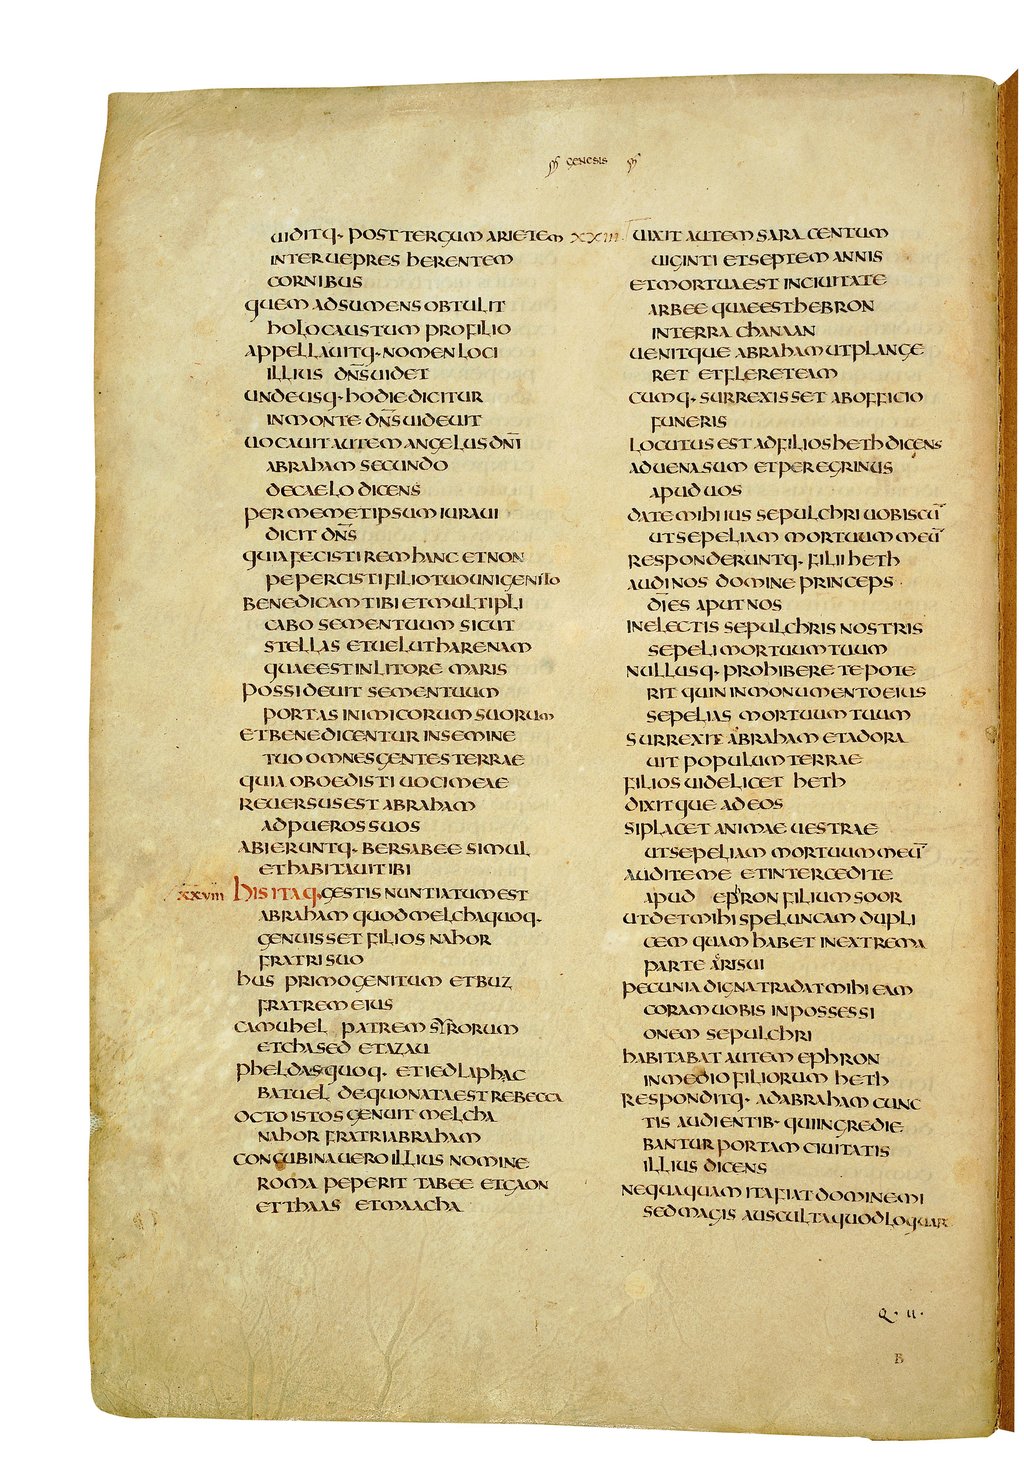 GENESIS
UIDITQ· POST TERGUM ARIETEM
INTER UEPRES HERENTEM
CORNIBUS
QUEM ADSUMENS OBTULIT
HOLOCAUSTUM PRO FILIO
APPELLAUITQ· NOMEN LOCI
ILLIUS DN̄S UIDET
UNDE USQ· HODIE DICITUR
IN MONTE DN̄S UIDEUIT
UOCAUIT AUTEM ANGELUS DN̄I
ABRAHAM SECUNDO
DE CAELO DICENS
PER MEMETIPSUM IURAUI
DICIT DN̄S
QUIA FECISTI REM HANC ET NON
PEPERCISTI FILIO TUO UNIGENITO
BENEDICAM TIBI ET MULTIPLI
CABO SEMEN TUUM SICUT
STELLAS ET UELUT HARENAM
QUAE EST IN LITORE MARIS
POSSIDEUIT SEMEN TUUM
PORTAS INIMICORUM SUORUM
ET BENEDICENTUR IN SEMINE
TUO OMNES GENTES TERRAE
QUIA OBOEDISTI UOCI MEAE
REUERSUS EST ABRAHAM
AD PUEROS SUOS
ABIERUNTQ· BERSABEE SIMUL
ET HABITAUIT IBI
XXVIII HIS ITAQ· GESTIS NUNTIATUM EST
ABRAHAM QUOD MELCHA QUOQ·
GENUISSET FILIOS NAHOR
FRATRI SUO
HUS PRIMOGENITUM ET BUZ
FRATREM EIUS
CAMUHEL PATREM SYRORUM
ET CHASED ET AZAU
PHELDAS QUOQ· ET IEDLAPHAC
BATUEL DE QUO NATA EST REBECCA
OCTO ISTOS GENUIT MELCHA
NAHOR FRATRI ABRAHAM
CONCUBINA UERO ILLIUS NOMINE
ROMA PEPERIT TABEE ET GAON
ET THAAS ET MAACHA
XXIII UIXIT AUTEM SARA CENTUM
UIGINTI ET SEPTEM ANNIS
ET MORTUA EST IN CIUITATE
ARBEE QUAE EST HEBRON
IN TERRA CHANAAN
UENITQUE ABRAHAM UT PLANGE
RET ET FLERET EAM
CUMQ· SURREXISSET AB OFFICIO
FUNERIS
LOCUTUS EST AD FILIOS HETH DICENS
ADUENA SUM ET PEREGRINUS
APUD UOS
DATE MIHI IUS SEPULCHRI UOBISCU̅
UT SEPELIAM MORTUUM MEU̅
RESPONDERUNTQ· FILII HETH
AUDI NOS DOMINE PRINCEPS
DI̅ ES APUT NOS
IN ELECTIS SEPULCHRIS NOSTRIS
SEPELI MORTUUM TUUM
NULLUSQ· PROHIBERE TE POTE
RIT QUIN IN MONUMENTO EIUS
SEPELIAS MORTUUM TUUM
SURREXIT ABRAHAM ET ADORA
UIT POPULUM TERRAE
FILIOS UIDELICET HETH
DIXITQUE AD EOS
SI PLACET ANIMAE UESTRAE
UT SEPELIAM MORTUUM MEU̅
AUDITE ME ET INTERCEDITE
APUD EPHRON FILIUM SOOR
UT DET MIHI SPELUNCAM DUPLI
CEM QUAM HABET IN EXTREMA
PARTE AGRI SUI
PECUNIA DIGNA TRADAT MIHI EAM
CORAM UOBIS IN POSSESSI
ONEM SEPULCHRI
HABITABAT AUTEM EPHRON
IN MEDIO FILIORUM HETH
RESPONDITQ· AD ABRAHAM CUNC
TIS AUDIENTIB· QUI INGREDIE
BANTUR PORTAM CIUITATIS
ILLIUS DICENS
NEQUAQUAM ITA FIAT DOMINE MI
SED MAGIS AUSCULTA QUOD LOQUAR
Q· II·
B